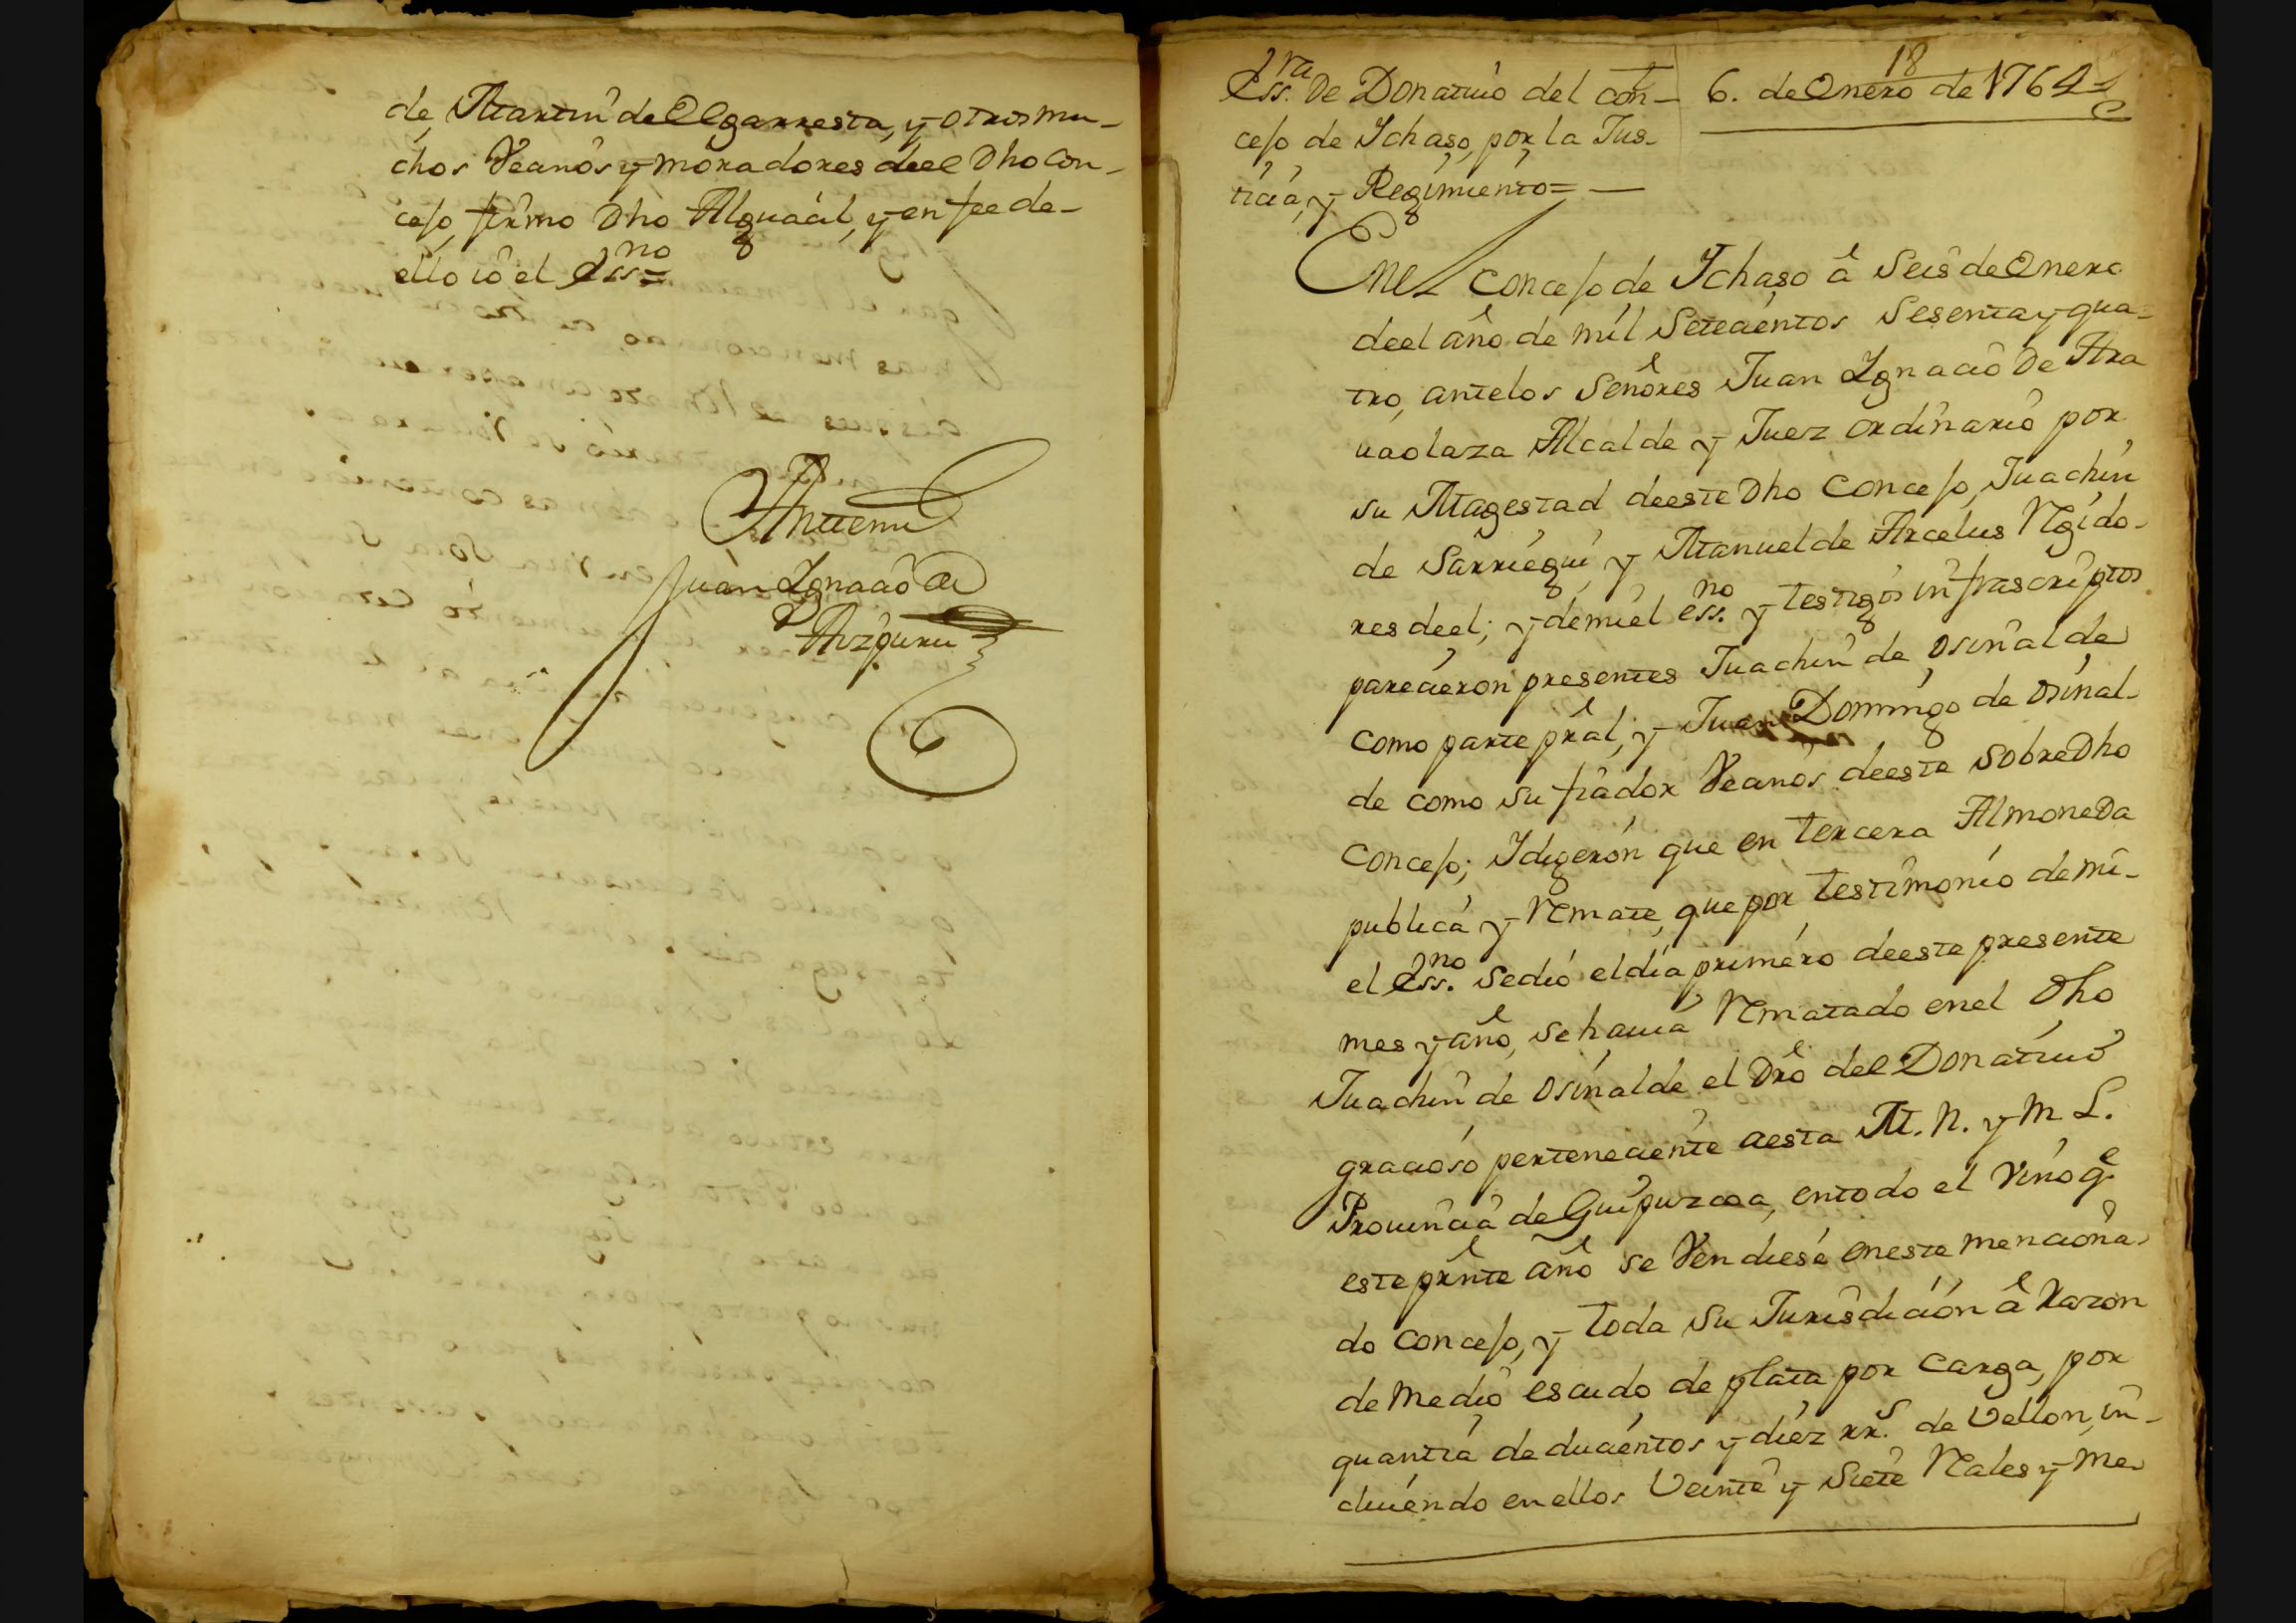 de Martin de Elgarresta, y otros mu-
chos Vecinos y moradores deel Dho Con-
cejo, firmo Dho Alguacil, y en fee de-
ello io el Ess.no=
Antemi
Juan Ignacio de
Aizpuru
Ess.ra De Donativo del con-
cejo de Ichaso, por la Jus-
ticia, y Regimiento=
18
6. de Enero de 1764
Enel Concejo de Ichaso â Seis de Enero
deel año de mil Setecientos Sesenta y qua=
tro, antelos Señores Juan Ignacio De Ara
uaolaza Alcalde y Juez ordinario por
su Magestad deeste Dho Concejo, Juachin
de Sarriegui, y Manuel de Arcelus Rgido-
res deel; y demi el ess.no y testigos infrascriptos
parecieron presentes Juachin de Osinalde
como parte pral, y Juan Domingo de Osinal-
de como su fiador Vecinos deeste sobreDho
Concejo; Idigeron que en tercera AlmoneDa
publica y Rmate, que por testimonio demi-
el Ess.no Sedio el dia primero deeste presente
mes y año, se hauia Rmatado enel Dho
Juachin de Osinalde el Dro del Donativo
gracioso perteneciente aesta M. N. y M L.
Prouincia de Guipuzcoa, entodo el Vino q.e
este prnte año se Vendiese eneste menciona-
do concejo, y toda su Jurisdicion â Razon
de medio escudo de plata por Carga, por
quantia de ducientos y diez rr.s de Vellon, in-
cluiendo en ellos Veinte y Siete Rales y me-